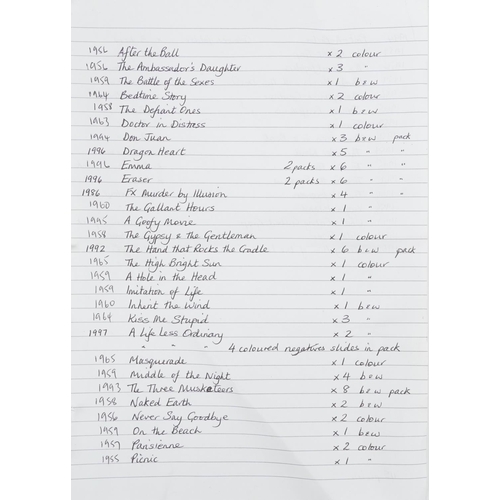 1956 After the Ball x 2 colour
1956 The Ambassador's Daughter x 3 "
1959 The Battle of the Sexes x 1 b&w
1964 Bedtime Story x 2 colour
1958 The Defiant Ones x 1 b&w
1963 Doctor in Distress x 1 colour
1994 Don Juan x 3 b&w pack
1996 Dragon Heart x 5 " "
1996 Emma 2 packs x 6 " "
1996 Eraser 2 packs x 6 " "
1986 FX Murder by Illusion x 4 " "
1960 The Gallant Hours x 1 "
1995 A Goofy Movie x 1 "
1958 The Gypsy & the Gentleman x 1 colour
1992 The Hand that Rocks the Cradle x 6 b&w pack
1965 The High Bright Sun x 1 colour
1959 A Hole in the Head x 1 "
1959 Imitation of Life x 1 "
1960 Inherit the Wind x 1 b&w
1964 Kiss Me Stupid x 3 "
1997 A Life Less Ordinary x 2 "
" " " 4 coloured negatives slides in pack
1965 Masquerade x 1 colour
1959 Middle of the Night x 4 b&w
1993 The Three Musketeers x 8 b&w pack
1958 Naked Earth x 2 b&w
1956 Never Say Goodbye x 2 colour
1959 On the Beach x 1 b&w
1957 Parisienne x 2 colour
1955 Picnic x 1 "